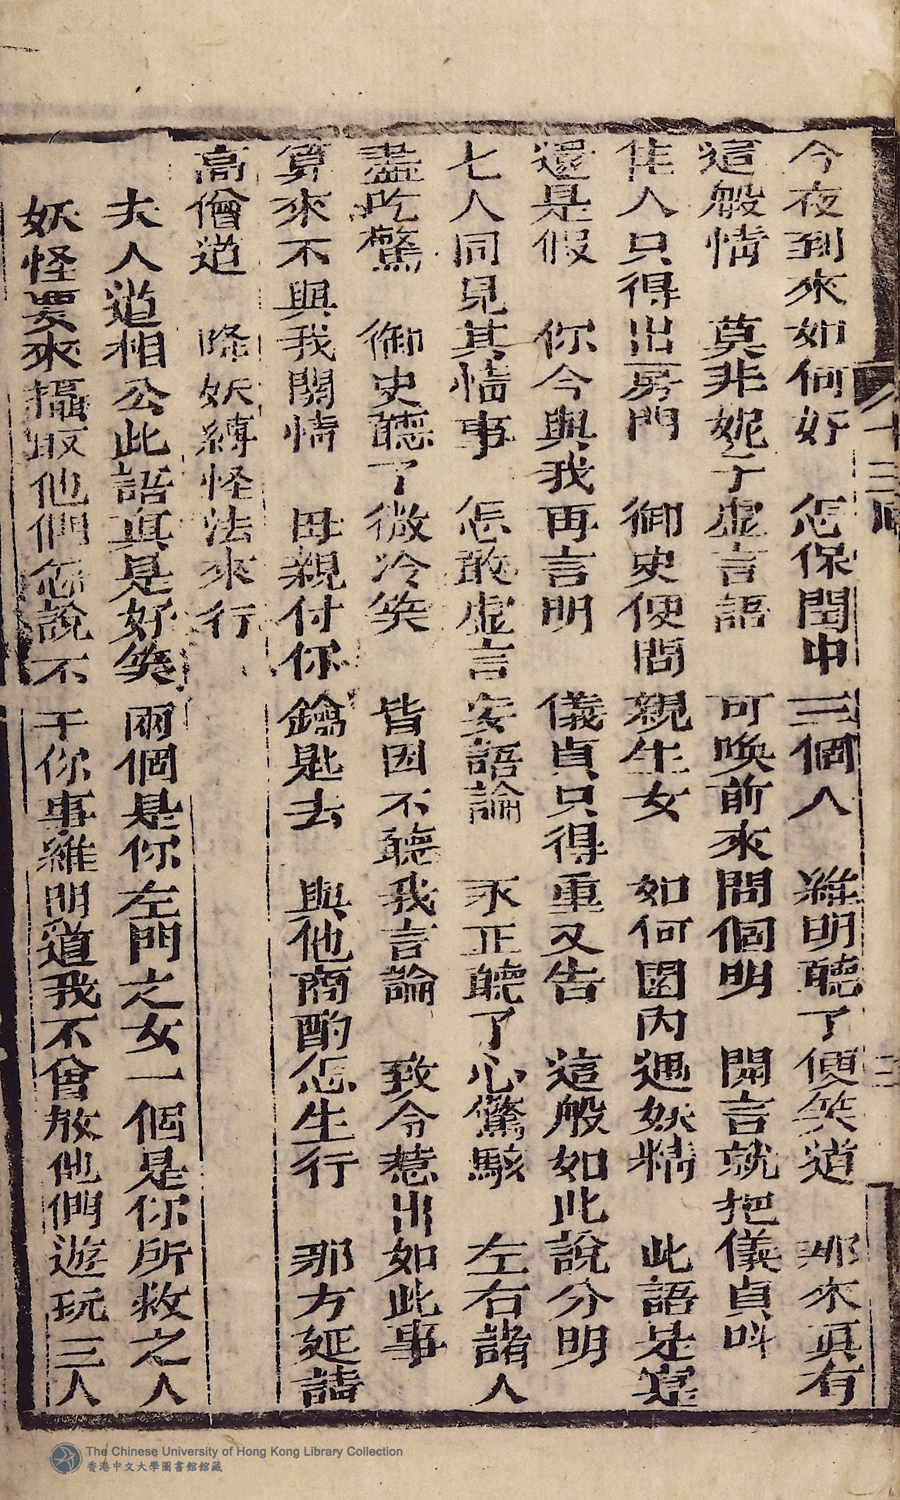 今夜到來如何好　怎保閨中三個人　維明聽了便笑道　那來真有
這般情　莫非妮子虛言語　可喚前來問個明　開言就把儀貞呌
隹人只得出房門　御史便問親生女　如何園內遇妖精　此語是寔
還是假　你今與我再言明　儀貞只得重又告　這般如此說分明
七人同見其情事　怎敢虛言妄語論　永正聽了心驚駭　左右諸人
盡吃驚　御史聽了微冷笑　皆因不聽我言論　致令惹出如此事
算來不與我關情　母親付你鑰匙去　與他商酌怎生行　那方延請
高僧道　降妖縛怪法來行
夫人道相公此語真是好笑兩個是你左門之女一個是你所救之人
妖怪要來攝取他們怎說不干你事維明道我不曾教他們遊玩三人
十三回
二
The Chinese University of Hong Kong Library Collection
香港中文大學圖書館館藏